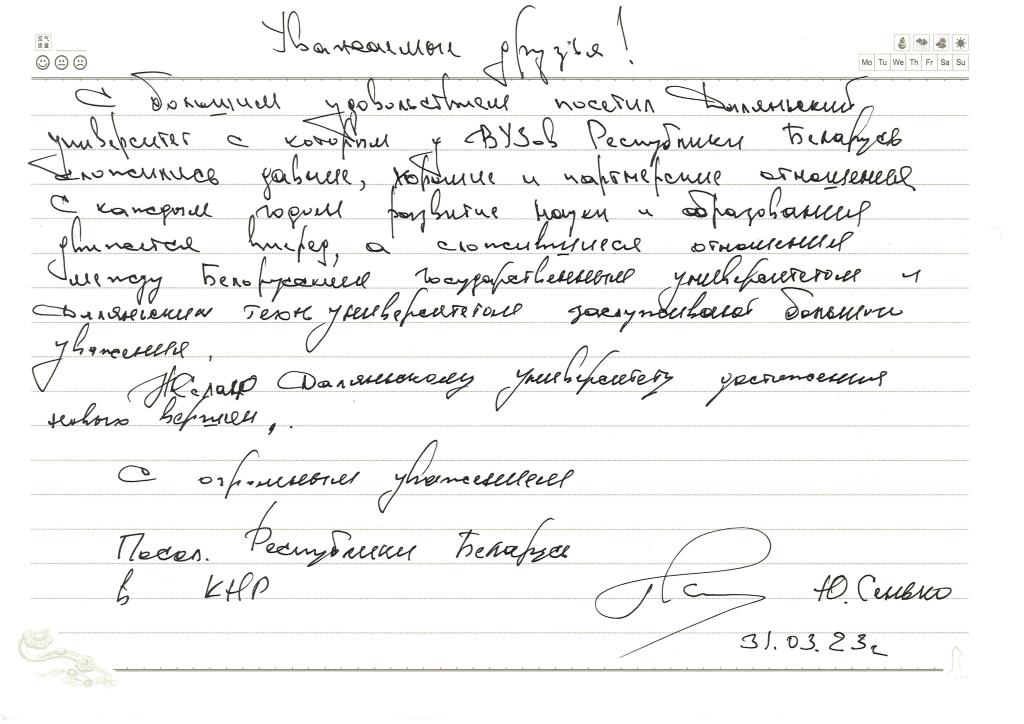 空气
质量
Mo Tu We Th Fr Sa Su
Уважаемые друзья!
С большим удовольствием посетил Даляньский
университет с которым у ВУЗов Республики Беларусь
сложились давние, хорошие и партнерские отношения
С каждым годом развитие науки и образования
движется вперед, а сложившиеся отношения
между Белорусским государственным университетом и
Даляньским техн университетом заслуживают большого
уважения.
Желаю Даляньскому университету достижения
новых вершин.
С огромным уважением
Посол. Республики Беларусь
в КНР
Ю. Сенько
31.03.23г